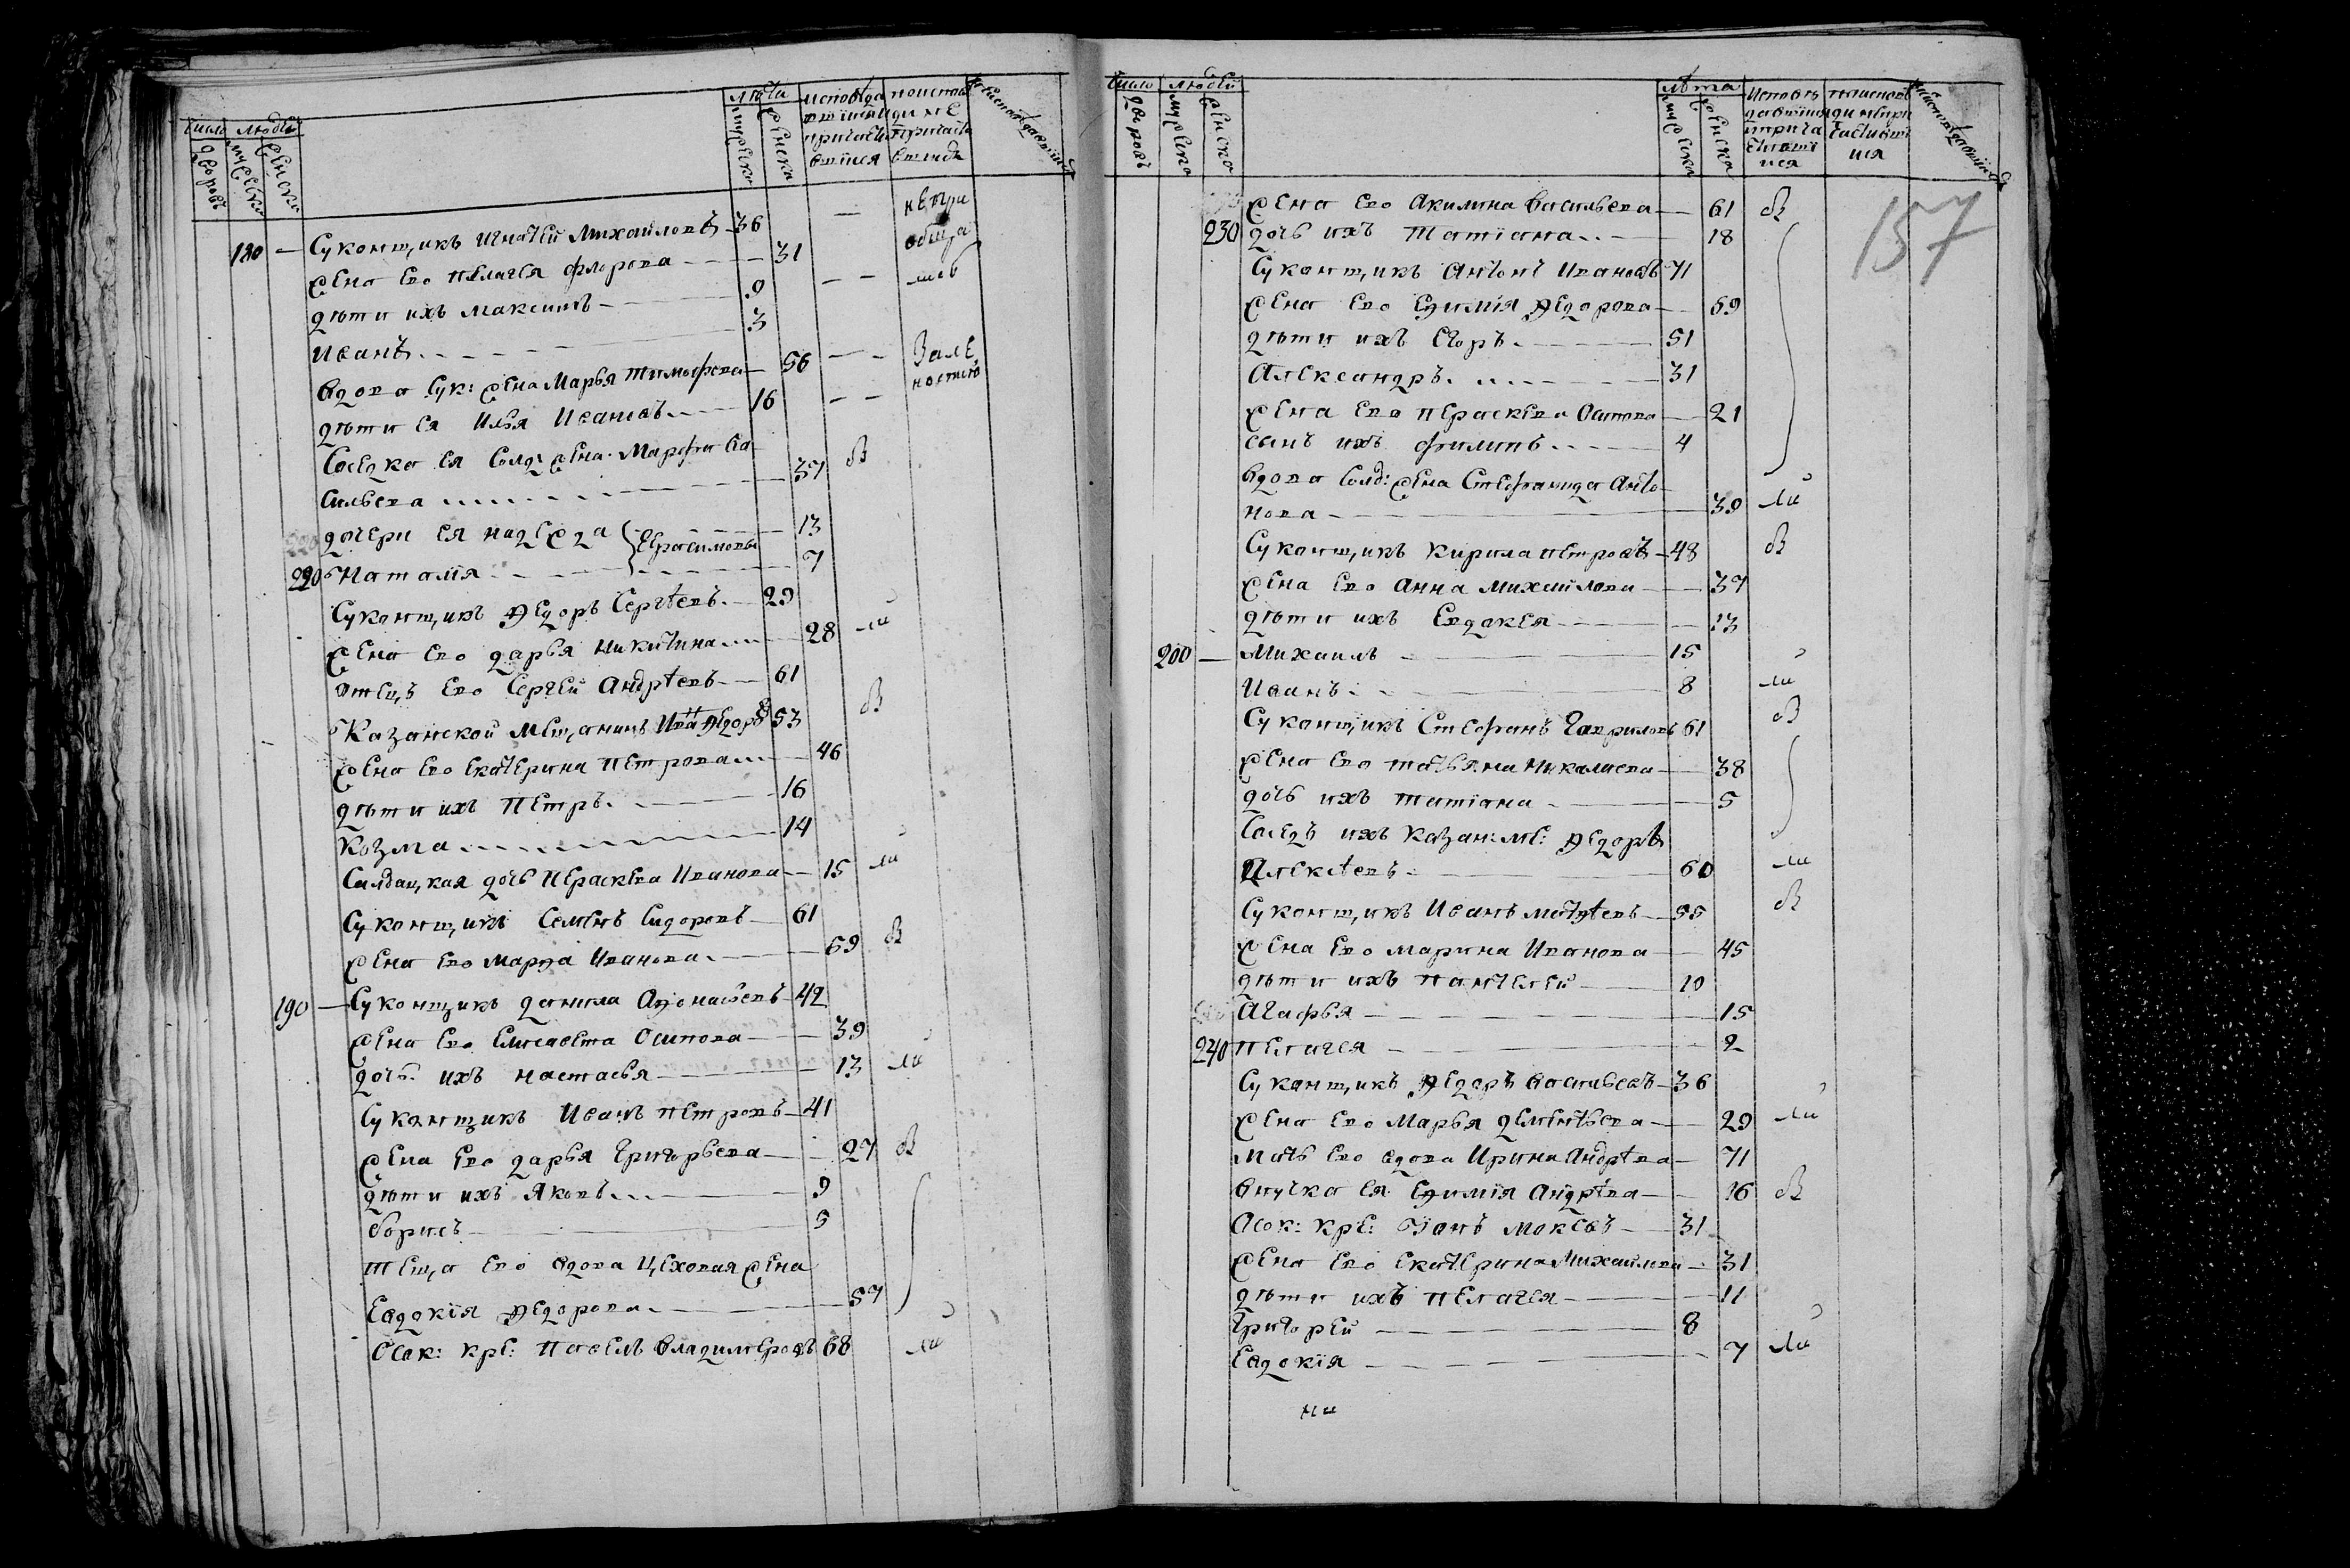 число людей лѣта
дворовъ мужеска женска мужеска женска
180 — Суконщикъ Игнатей Михайловъ — 36 — непри
жена ево пелагея флорова — 31 обща
дѣти ихъ максимъ — 9 — —
Иванъ — 3
вдова Сук: жена Марья тимофеева — 56 — — Залѣ
дѣти ея Илья Ивановъ — 16 — — ностию
Соседка ея Солд: жена Марфа Ва
сильева — 37 В
дочери ея надежда } Герасимовы — 13
220 Наталiя — 7
Суконщикъ Ѳедоръ Сергѣевъ — 29
жена ево дарья никитина — 28 ли
отецъ ево Сергей Андрѣевъ — 61
Казанской мещанинъ Иванъ Ѳедоровъ 53 В
жена ево екатерина петрова — 46
дѣти ихъ петръ — 16
козма — 14
Салдацкая дочь Параскева Иванова — 15 ли
Суконщикъ Семенъ Сидоровъ — 61
жена ево марѳа Иванова — 69 В
190 — Суконщикъ данила Аѳонасьевъ — 42
жена ево Елисавета Осипова — 39
дочь ихъ настасья — 13 ли
Суконщикъ Иванъ петровъ — 41
жена ево дарья Григорьева — 27 В
дѣти ихъ Яковъ — 9
борисъ — 5
теща ево вдова Цеховая жена
Евдокiя Ѳедорова — 57
Ясак: кре: Павелъ владимеровъ 68 ли
число людей лѣта
дворовъ мужеска женска мужеска женска
157
жена ево Акилина васильева — 61 В
230 дочь ихъ татiана — 18
Суконщикъ Антонъ Ивановъ 71
жена ево Еѳимiя Ѳедорова — 69
дѣти ихъ Егоръ — 51
Александръ — 31
жена ево параскева Осипова — 21
сынъ ихъ филипъ — 4
вдова Солд: жена Стефанида Анто
нова — 39 ли
Суконщикъ кирила петровъ — 48 В
жена ево анна михайлова — 37
дѣти ихъ Евдокея — 13
200 — Михаилъ — 15
Иванъ — 8 ли
Суконщикъ Стефанъ Гавриловъ 61 В
жена ево татьяна николаева — 38
дочь ихъ татiана — 5
Соседъ ихъ казан: ме: Ѳедоръ
Алексѣевъ — 60 ли
Суконщикъ Иванъ матѳѣевъ — 55 В
жена ево марина Иванова — 45
дѣти ихъ пантелей — 10
Агафья — 15
240 пелагея — 2
Суконщикъ Ѳедоръ васильевъ — 36
жена ево Марья дементьева — 29 ли
мать ево вдова Ирина Андрѣева — 71
внучка ея Еѳимiя Андрѣева — 16 В
Ясок: кре: Иванъ — 31
жена ево екатерина Михайлова — 31
дѣти ихъ пелагея — 11
Григорей — 8
Евдокiя — 7 ли